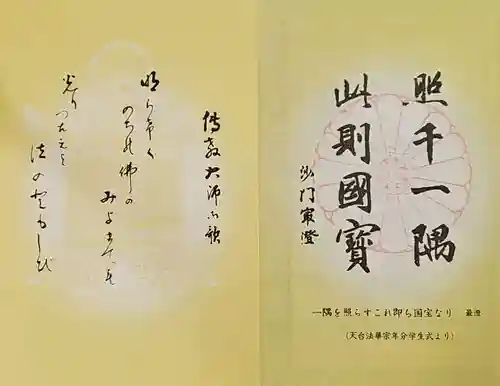 照千一隅
此則國寶
沙門最澄
一隅を照らすこれ即ち国宝なり 最澄
(天台法華宗年分学生式より)
傳教大師御歌
明らけく
のちの佛の
みよまでも
光り
つたえよ
法のともしび